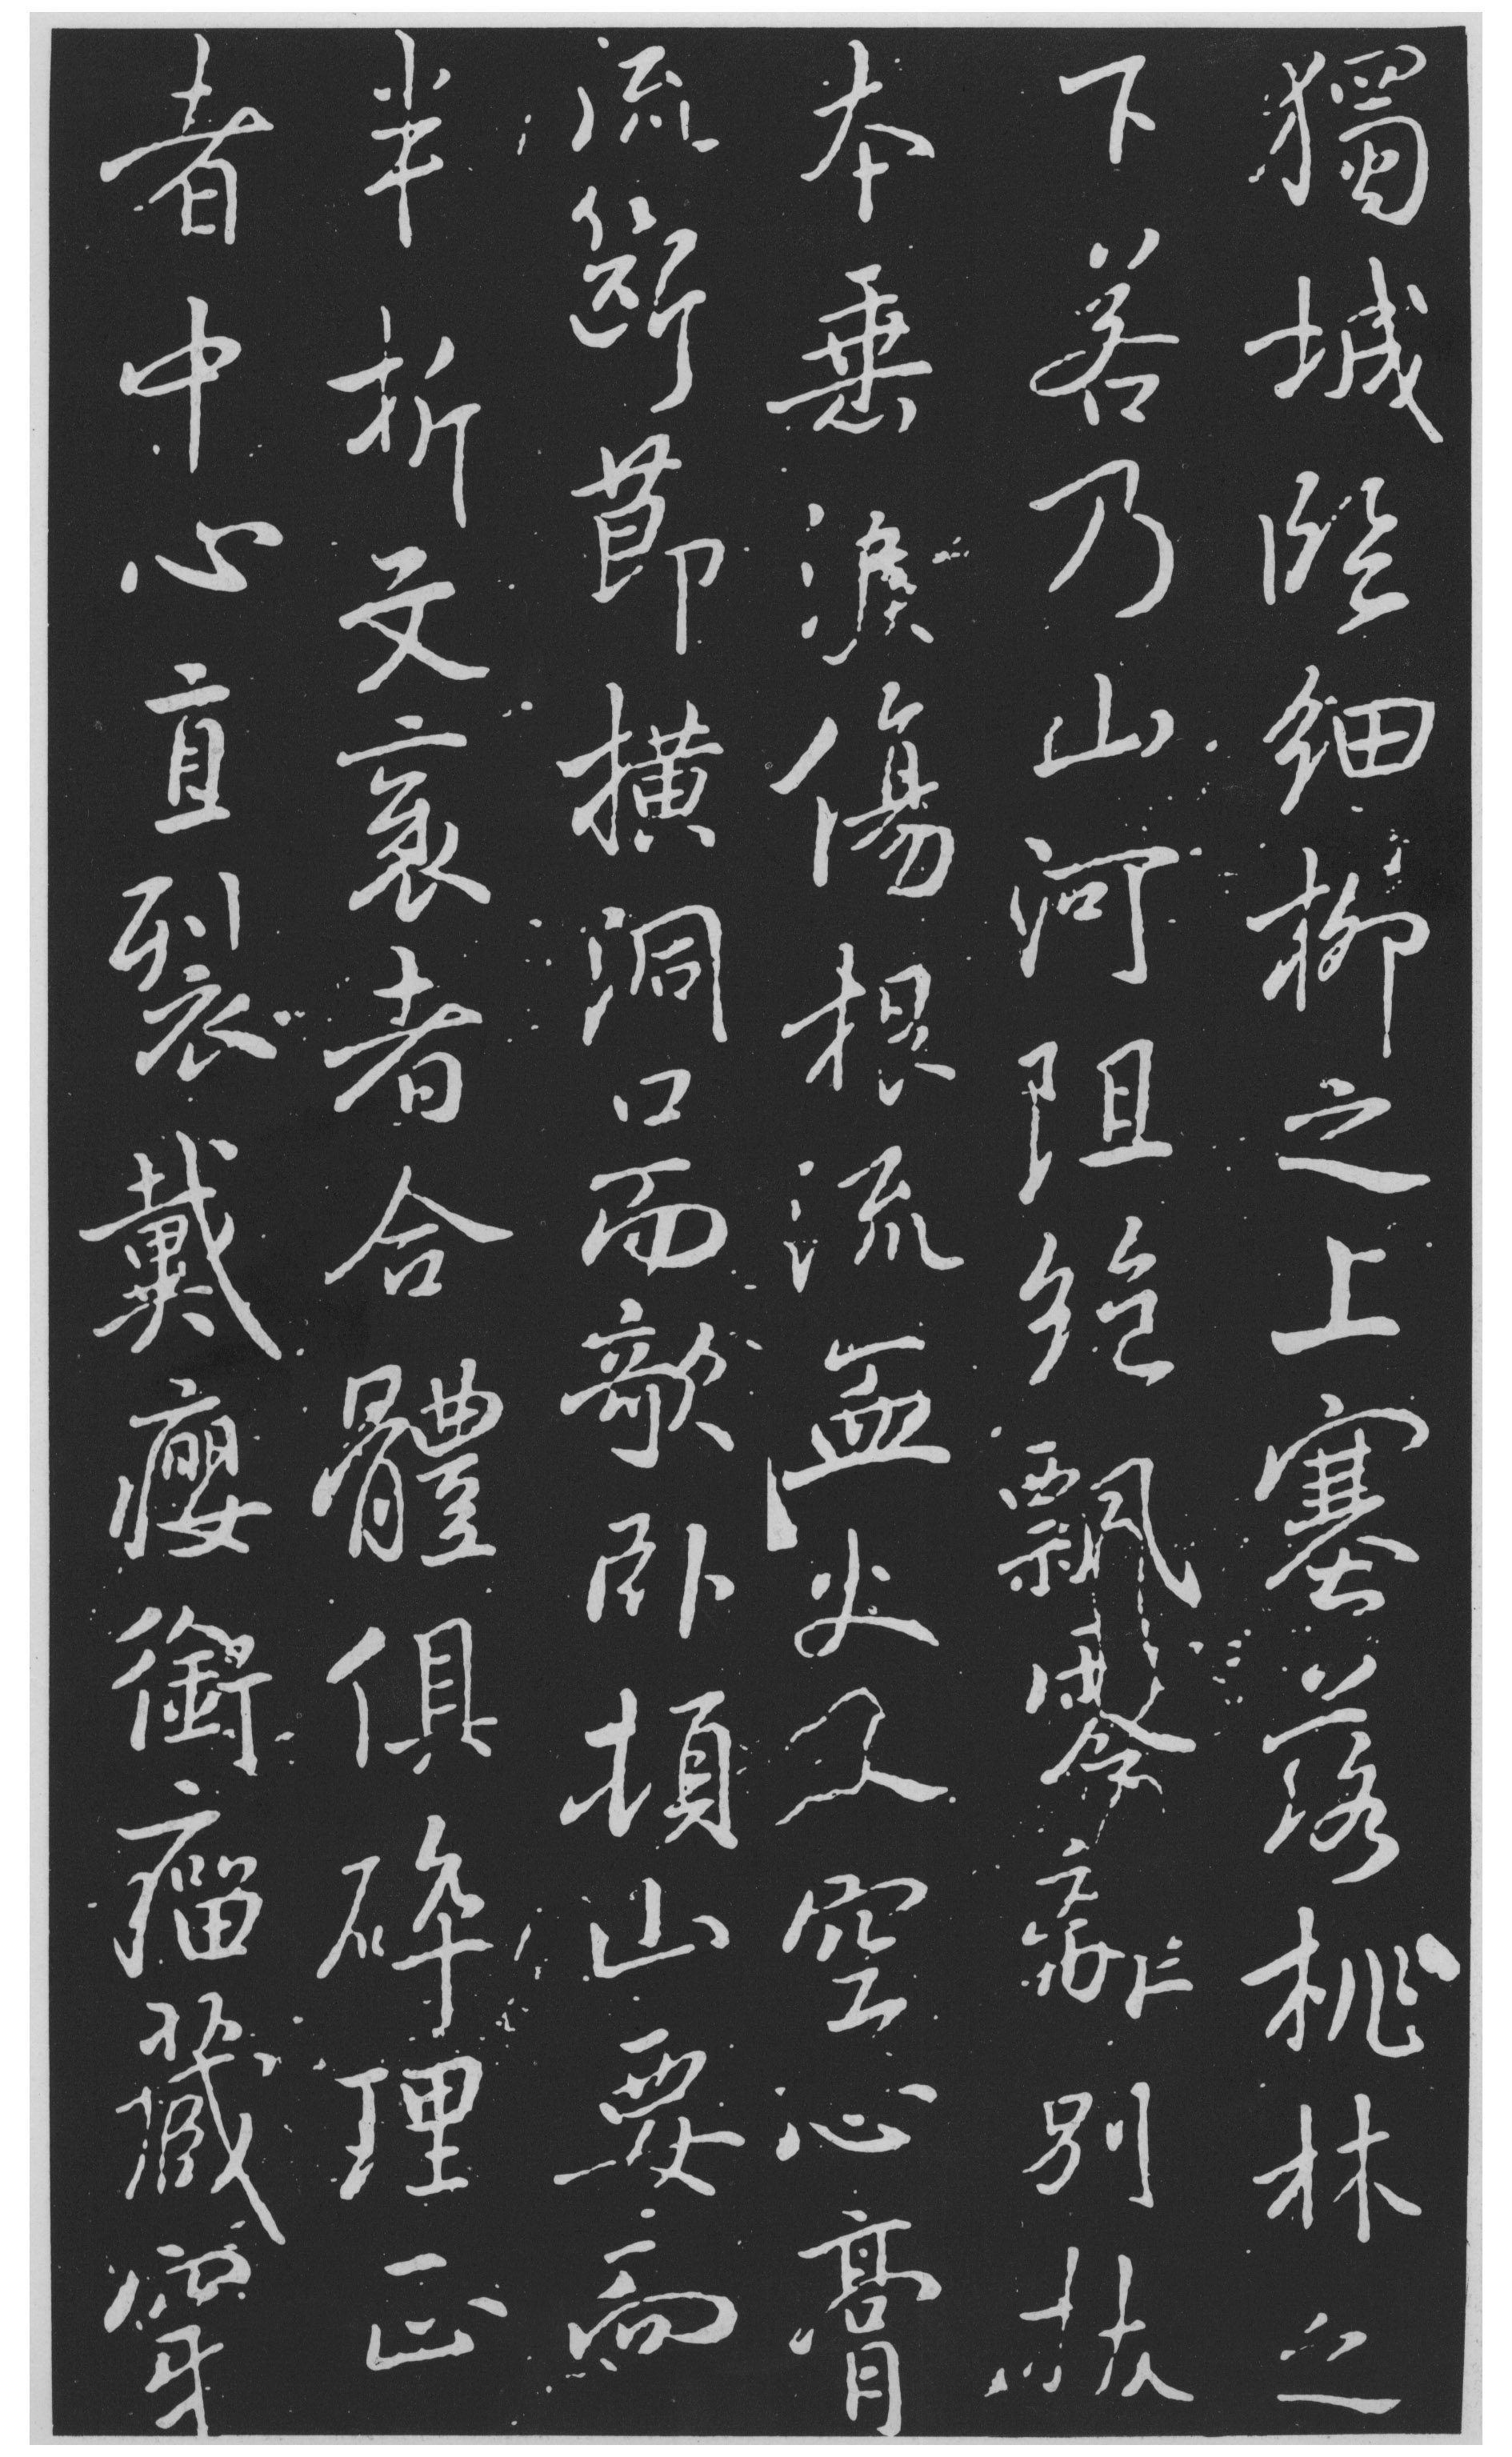 獨城臨細柳之上塞落桃林之
下若乃山河阻絶飄零離別拔
本垂淚傷根流血火入空心膏
流斷節橫洞口而欹卧頓山要而
半折文衺者合體俱碎理正
者中心直裂戴癭銜瘤藏穿